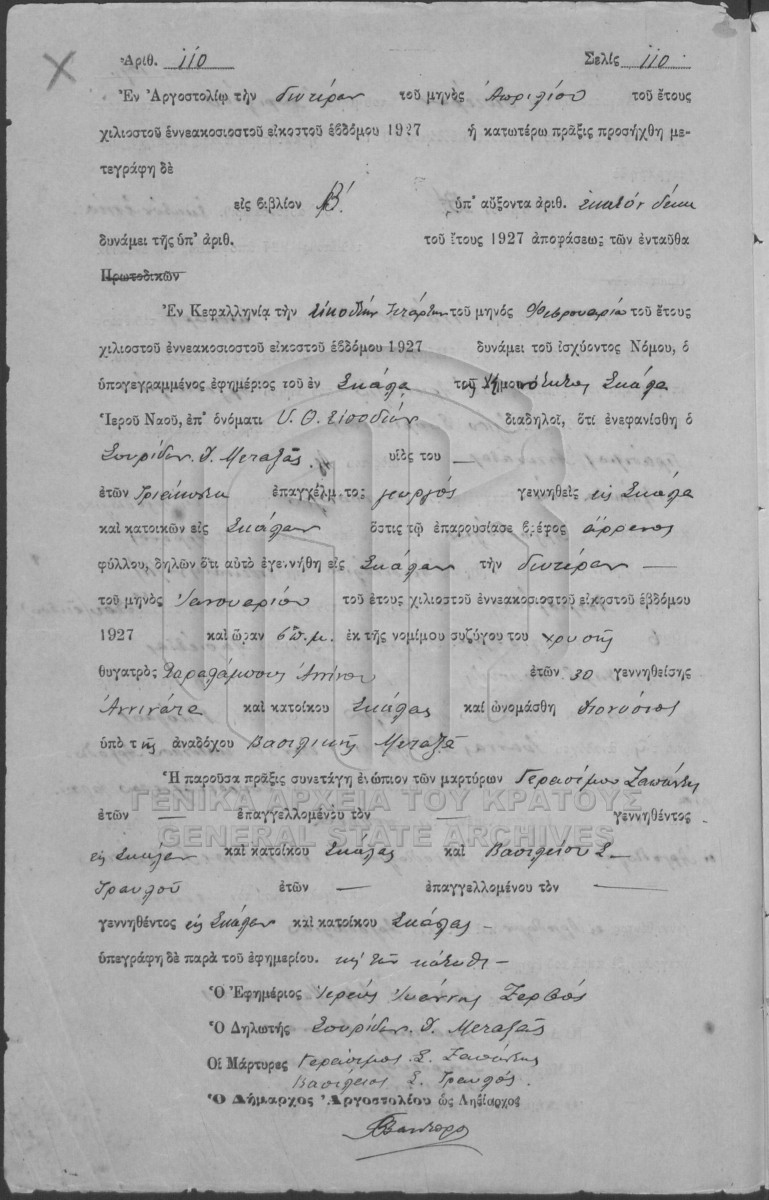 Ἀριθ. 110 Σελὶς 110
Ἐν Ἀργοστολίῳ τὴν δευτέραν τοῦ μηνὸς Ἀπριλίου τοῦ ἔτους
χιλιοστοῦ ἐννεακοσιοστοῦ εἰκοστοῦ ἑβδόμου 1927 ἡ κατωτέρω πρᾶξις προσήχθη με-
τεγράφη δὲ
εἰς βιβλίον Β′. ὑπ' αὔξοντα ἀριθ. ἑκατὸν δέκα
δυνάμει τῆς ὑπ' ἀριθ. τοῦ ἔτους 1927 ἀποφάσεως τῶν ἐνταῦθα
Πρωτοδικῶν
Ἐν Κεφαλληνίᾳ τὴν εἰκοστὴν τετάρτην τοῦ μηνὸς Φεβρουαρίου τοῦ ἔτους
χιλιοστοῦ ἐννεακοσιοστοῦ εἰκοστοῦ ἑβδόμου 1927 δυνάμει τοῦ ἰσχύοντος Νόμου, ὁ
ὑπογεγραμμένος ἐφημέριος τοῦ ἐν Σκάλᾳ τῆς Κοινότητος Σκάλα
Ἱεροῦ Ναοῦ, ἐπ' ὀνόματι Υ. Θ. Εἰσοδίων διαδηλοῖ, ὅτι ἐνεφανίσθη ὁ
Σπυρίδων Δ. Μεταξᾶς υἱὸς του —
ἐτῶν τριάκοντα ἐπαγγέλματος γεωργὸς γεννηθεὶς εἰς Σκάλα
καὶ κατοικῶν εἰς Σκάλαν ὅστις τῷ ἐπαρουσίασε βρέφος ἄρρενος
φύλλου, δηλῶν ὅτι αὐτὸ ἐγεννήθη εἰς Σκάλαν τὴν δευτέραν —
τοῦ μηνὸς Ἰανουαρίου τοῦ ἔτους χιλιοστοῦ ἐννεακοσιοστοῦ εἰκοστοῦ ἑβδόμου
1927 καὶ ὥραν 6 π.μ. ἐκ τῆς νομίμου συζύγου του Χρυσῆς
θυγατρὸς Χαραλάμπους Ἀννίνου ἐτῶν 30 γεννηθείσης
Ἀννινάτα καὶ κατοίκου Σκάλας καὶ ὠνομάσθη Διονύσιος
ὑπὸ τῆς ἀναδόχου Βασιλικῆς Μεταξᾶ
Ἡ παροῦσα πρᾶξις συνετάγη ἐνώπιον τῶν μαρτύρων Γερασίμου Ζαπάντη
ΓΕΝΙΚΑ ΑΡΧΕΙΑ ΤΟΥ ΚΡΑΤΟΥΣ
ἐτῶν — ἐπαγγελλομένου τὸν — γεννηθέντος
GENERAL STATE ARCHIVES
εἰς Σκάλαν καὶ κατοίκου Σκάλας καὶ Βασιλείου Σ.
Τραυλοῦ ἐτῶν — ἐπαγγελλομένου τὸν —
γεννηθέντος εἰς Σκάλαν καὶ κατοίκου Σκάλας –
ὑπεγράφη δὲ παρὰ τοῦ ἐφημερίου. καὶ τῶν κάτωθι –
Ὁ Ἐφημέριος Ἱερεὺς Ἰωάννης Ζερβός
Ὁ Δηλωτὴς Σπυρίδων Δ. Μεταξᾶς
Οἱ Μάρτυρες Γεράσιμος Σ. Ζαπάντης
Βασίλειος Σ. Τραυλός.
Ὁ Δήμαρχος Ἀργοστολίου ὡς Ληξίαρχος